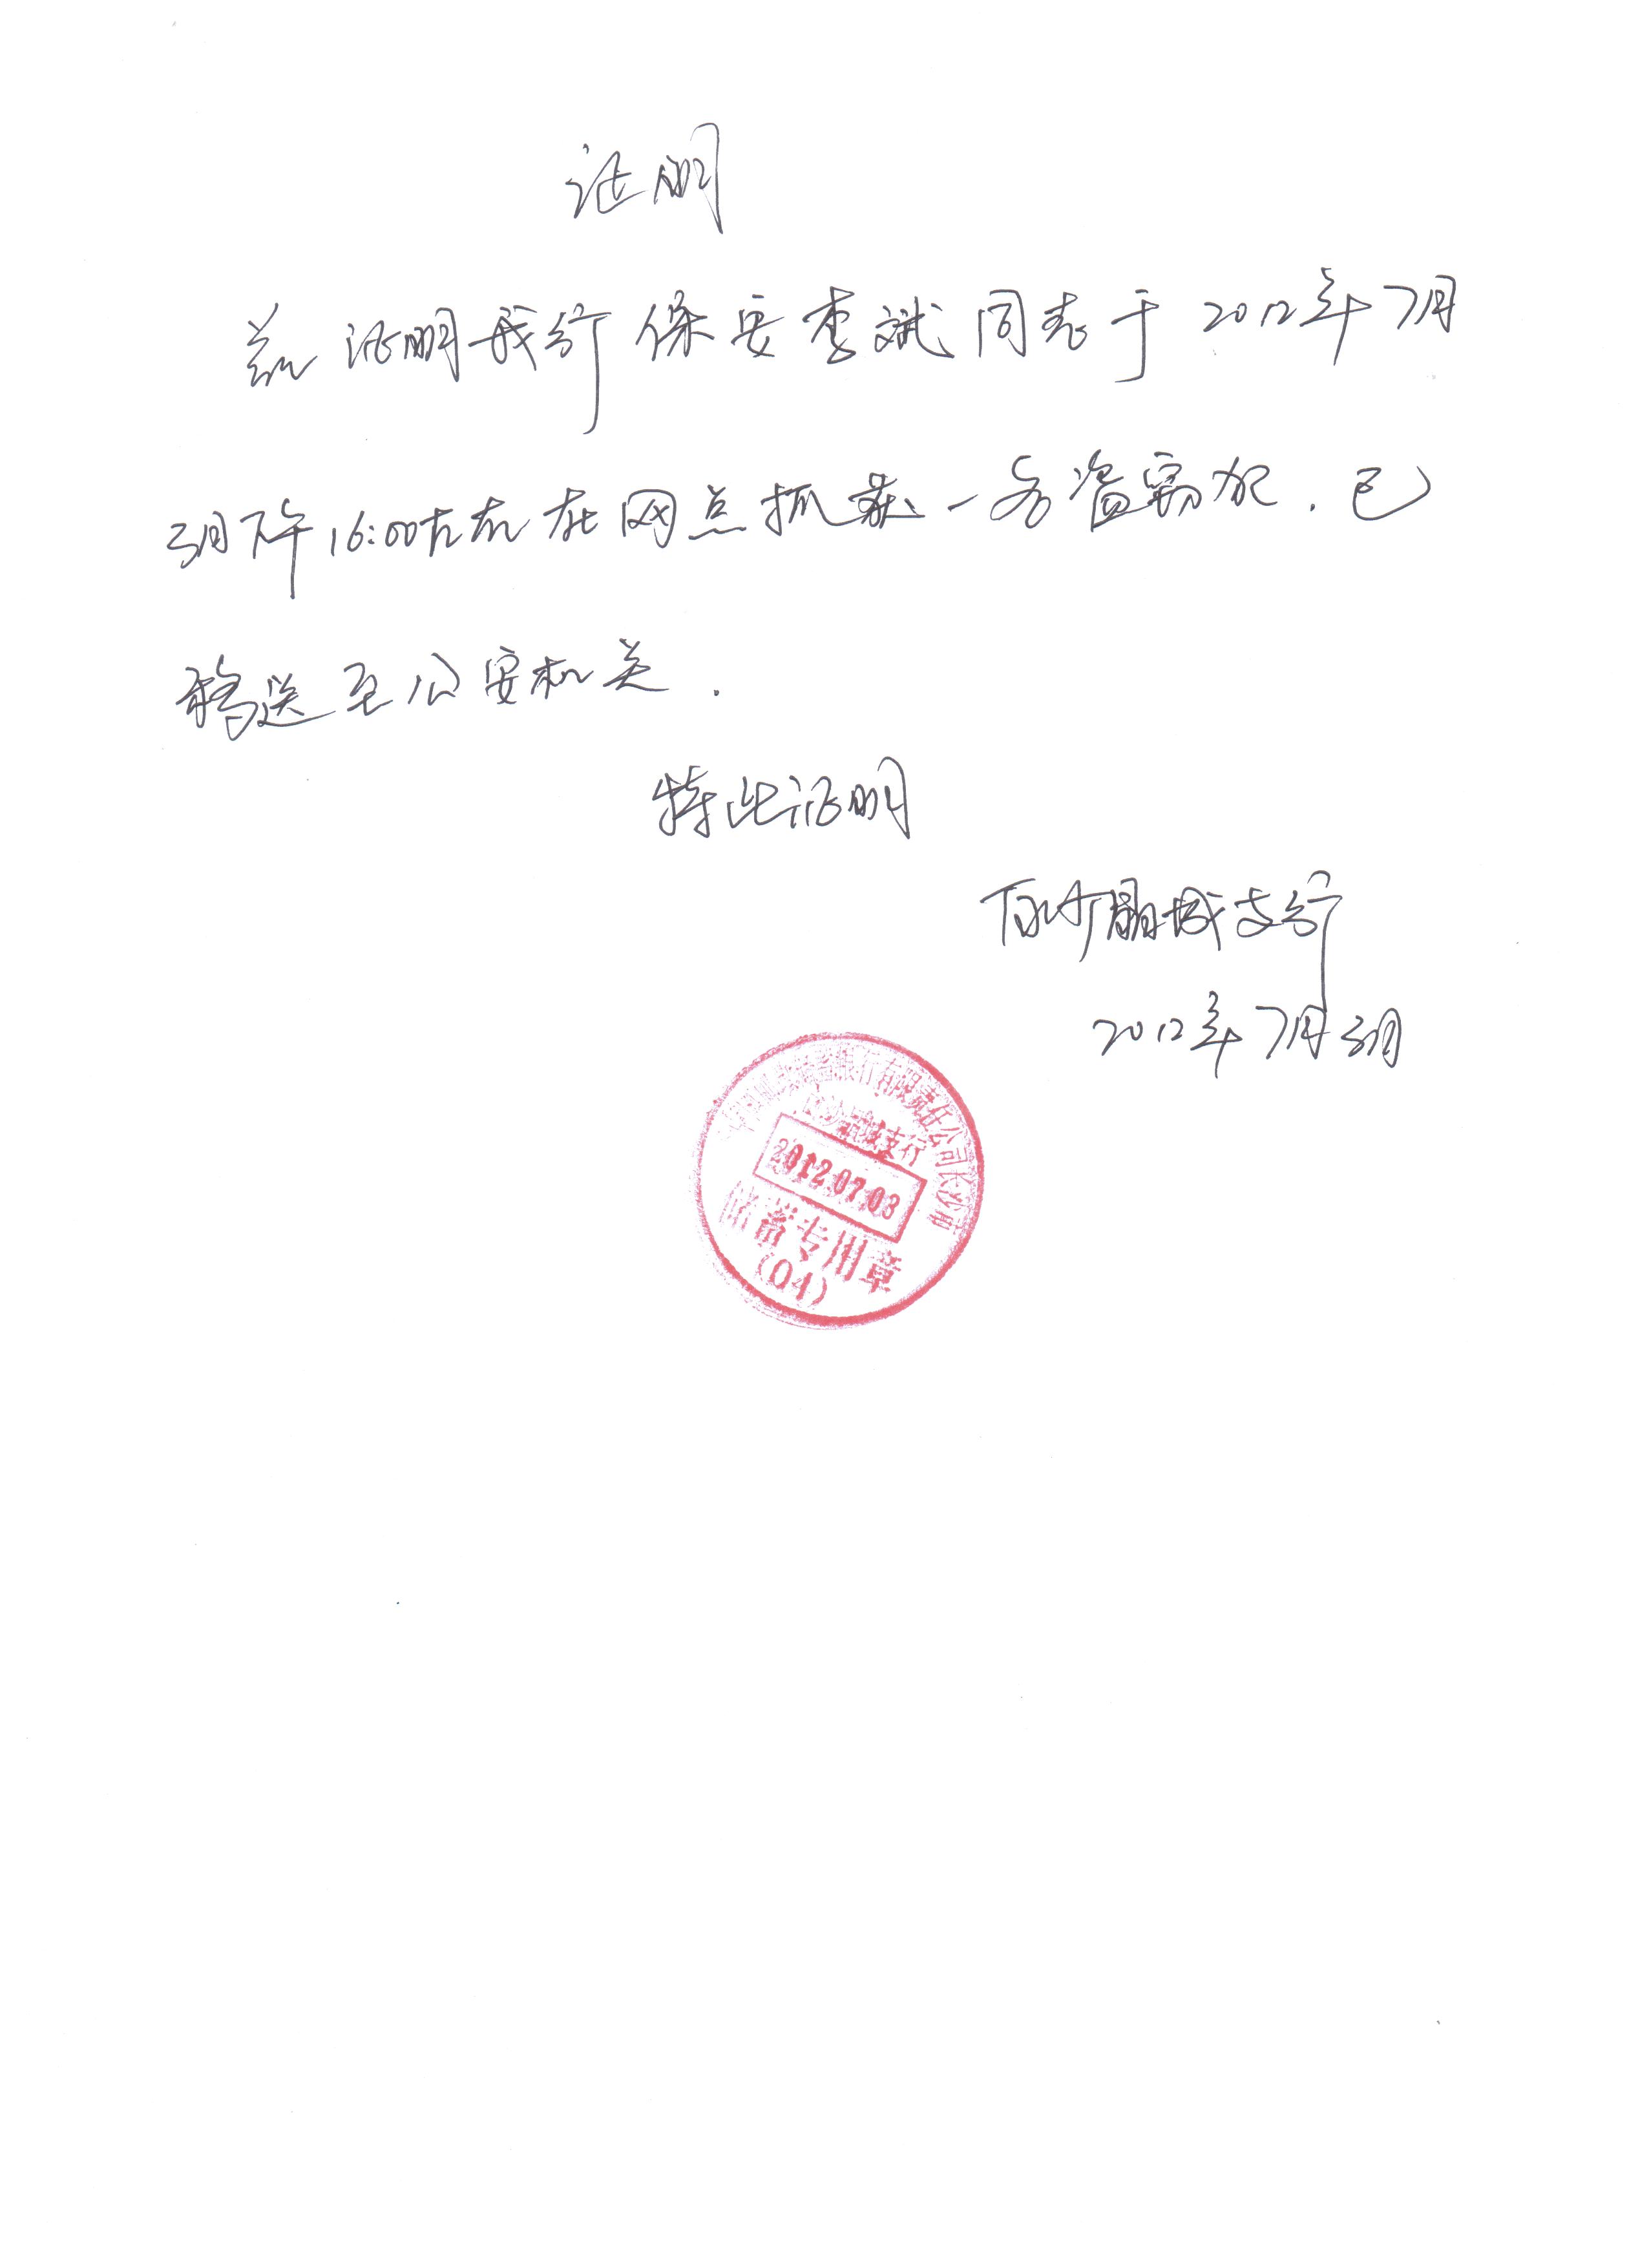 证明
兹证明我行保安李斌同志于2012年7月
3日下午16:00左右在网点抓获一名盗窃犯.已
移送至公安机关.
特此证明
晶城支行
2012年7月3日
银行有限责任公司长沙市
支行
2012.07.03
专用章
(04)